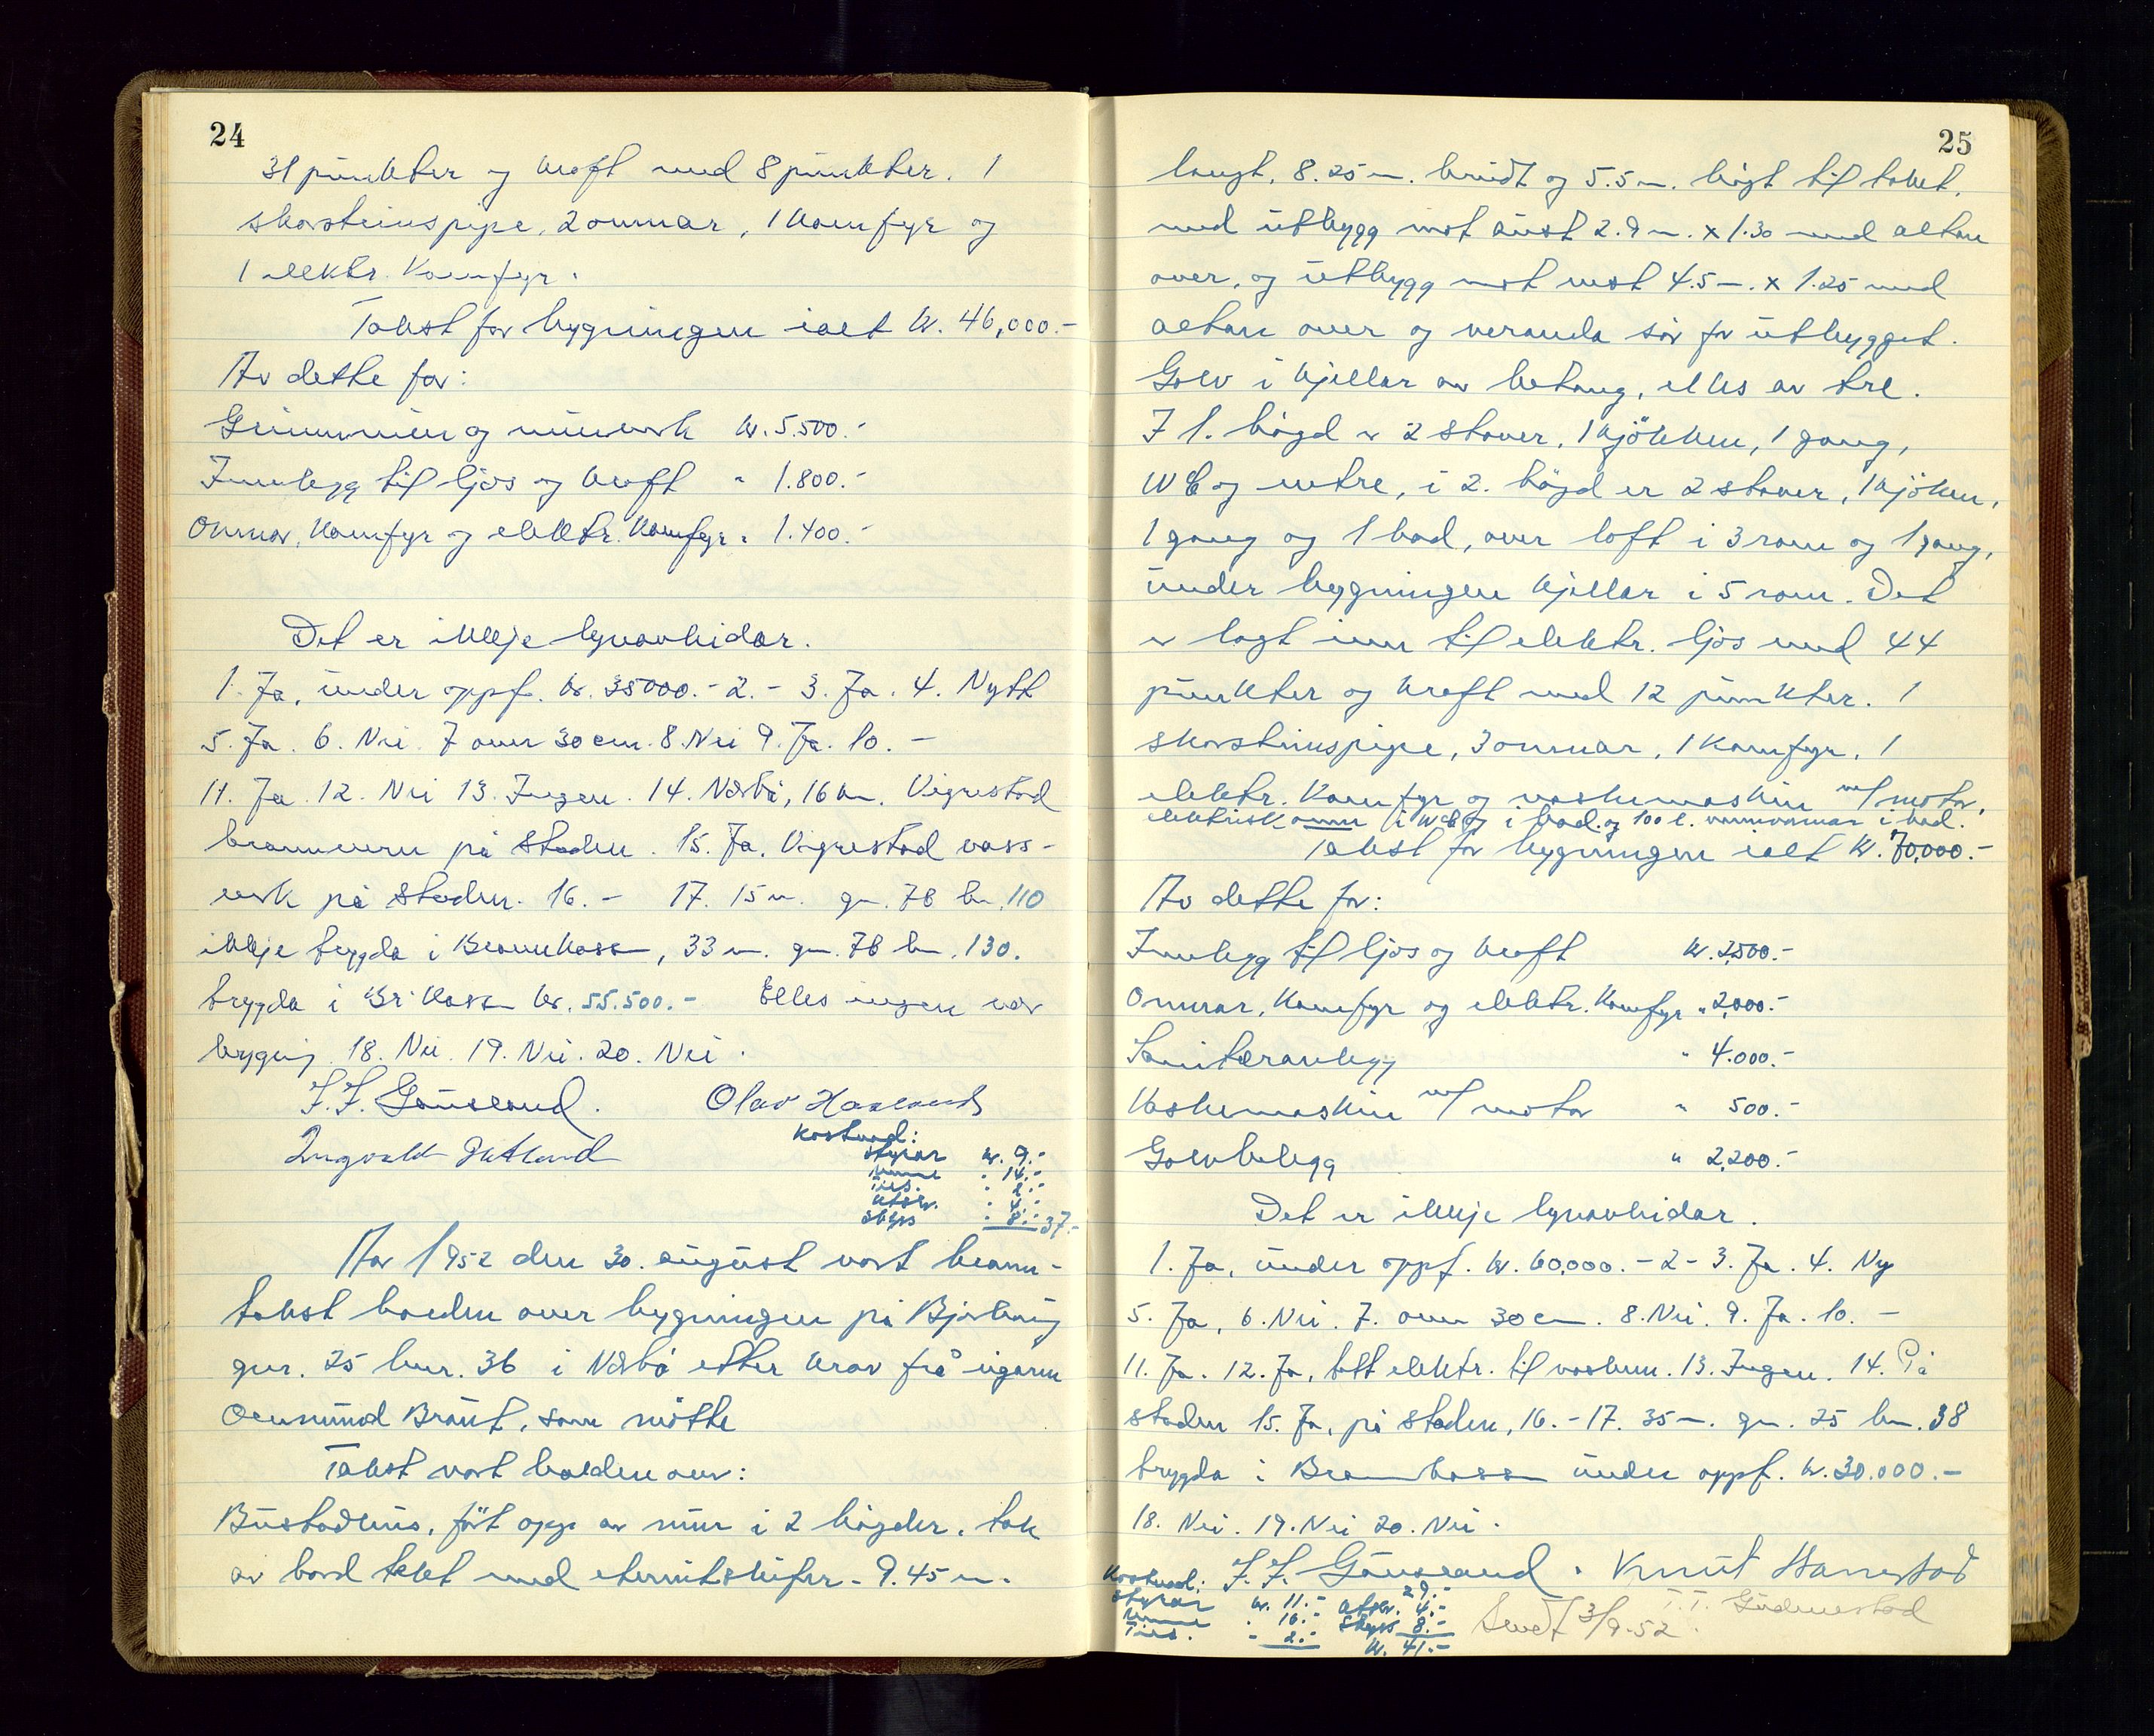 24
31 punkter og kraft med 8 punkter. 1
skorsteinspipe, 2 omnar, 1 komfyr og
1 elektr. komfyr.
Takst for bygningen ialt kr. 46,000.-
Av dette for:
Grunnmur og murverk kr. 5.500.-
Innlegg til ljos og kraft " 1.800.-
Omnar, komfyr og elektr. komfyr " 1.400.-
Det er ikkje lynavleidar.
1. Ja, under oppf. kr. 35000.- 2. - 3. Ja. 4. Nytt
5. Ja. 6. Nei. 7 over 30 cm. 8. Nei 9. Ja. 10. -
11. Ja. 12. Nei 13. Ingen. 14. Nærbø, 16 km. Vigrestad
brannvern på staden. 15. Ja. Vigrestad vass-
verk på staden. 16. - 17. 15 m. gn. 78 bn. 110
ikkje trygda i Brannkassa, 33 m. gn. 78 bn. 130.
trygda i Br. kassa kr. 55.500.- Elles ingen nær
bygning. 18. Nei. 19. Nei. 20. Nei.
J. J. Gausland. Olav Haaland
Ingvald Hetland
Kostnad:
Styrar kr. 9.-
Menn " 14.-
" 2.-
Utskr. " 4.-
Skyss " 8.- 37.-
År 1952 den 30. august vart brann-
takst halden over bygningen på Bjorhaug
gnr. 25 bnr. 36 i Nærbø etter krav frå eigaren
Oemund Braut, som møtte
Takst vart halden over:
Bustadhus, ført opp av mur i 2 høgder, tak
av bord tekt med eternitskifer. 9.45 m.
25
langt, 8.25 m. breidt og 5.5 m. høgt til taket.
med utbygg mot aust 2.9 m. x 1.30 med altan
over, og utbygg mot vest 4.5 m. x 1.25 med
altan over og veranda sør for utbygget.
Golv i kjellar av betong, elles av tre.
I 1. høgd er 2 stover, 1 kjøkken, 1 gang,
WC og entre, i 2. høgd er 2 stover, 1 kjøken,
1 gang og 1 bad, over loft i 3 rom og 1 gang,
under bygningen kjellar i 5 rom. Det
er lagt inn til elektr. ljos med 44
punkter og kraft med 12 punkter. 1
skorsteinspipe, 3 omnar, 1 komfyr, 1
elektr. komfyr og vaskemaskin m/ motor,
elektrisk omn i WC og i bad. og 100 l. varmvannar i bad.
Takst for bygningen ialt kr. 70,000.-
Av dette for:
Innlegg til ljos og kraft kr. 2500.-
Omnar, komfyr og elektr. komfyr " 2,000.-
Sanitæranlegg " 4.000.-
Vaskemaskin m/ motor " 500.-
Golvbelegg " 2,200.-
Det er ikkje lynavleidar.
1. Ja, under oppf. kr. 60,000.- 2 - 3. Ja. 4. Ny
5. Ja, 6. Nei. 7. over 30 cm. 8. Nei. 9. Ja. 10. -
11. Ja. 12. Ja, tett elektr. til vaskem. 13. Ingen. 14. På
staden 15. Ja, på staden, 16. - 17. 35 m. gn. 25 bn. 38
trygda i Brannkassa under oppf. kr. 30.000.-
18. Nei. 19. Nei 20. Nei.
J. J. Gausland. Knut Hanestad
T. T. Gudmestad
Kostnad: 29.-
Styrar kr. 11.- Utskr. 4.-
Menn " 16.- Skyss 8.-
" 2.- kr. 41.-
Sendt 3/9-52.